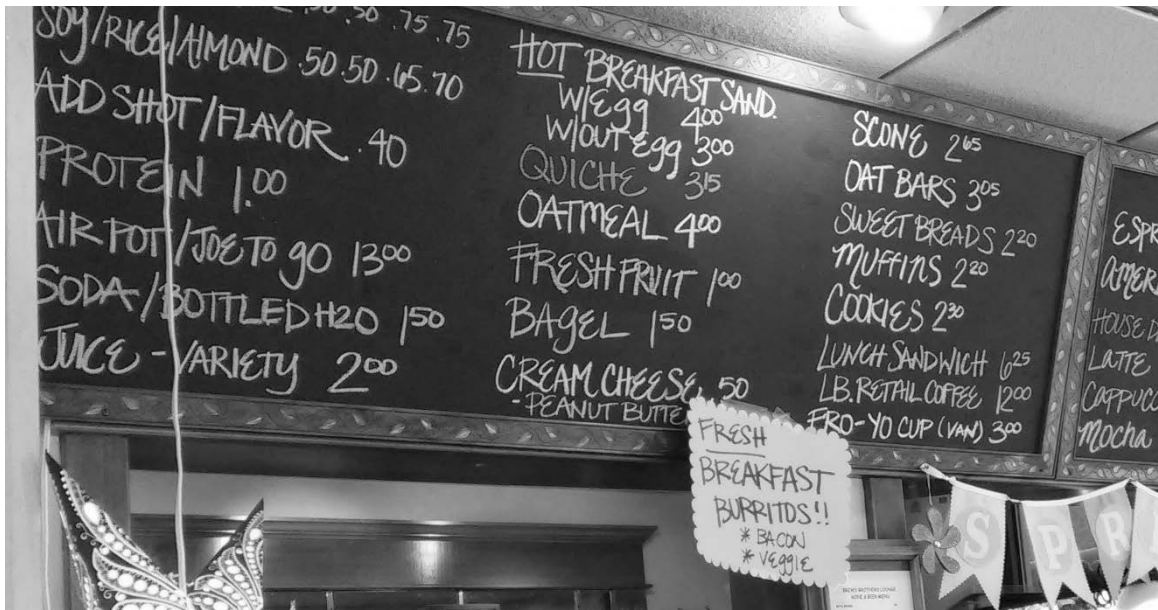 .50 .50 .75 .75
SOY/RICE/ALMOND .50 .50 .65 .70
ADD SHOT/FLAVOR .40
PROTEIN 1.00
AIR POT/JOE TO GO 1300
SODA/BOTTLED H2O 150
JUICE - VARIETY 200
HOT BREAKFAST SAND.
W/EGG 400
W/OUT EGG 300
QUICHE 315
OATMEAL 400
FRESH FRUIT 100
BAGEL 150
CREAM CHEESE .50
- PEANUT BUTTE
SCONE 265
OAT BARS 305
SWEET BREADS 220
MUFFINS 220
COOKIES 230
LUNCH SANDWICH 625
LB. RETAIL COFFEE 1200
FRO-YO CUP (VAN) 300
ESPR
AMERI
HOUSE D
LATTE
CAPPUCC
MOCHA
FRESH
BREAKFAST
BURRITOS!!
* BACON
* VEGGIE
SPRI